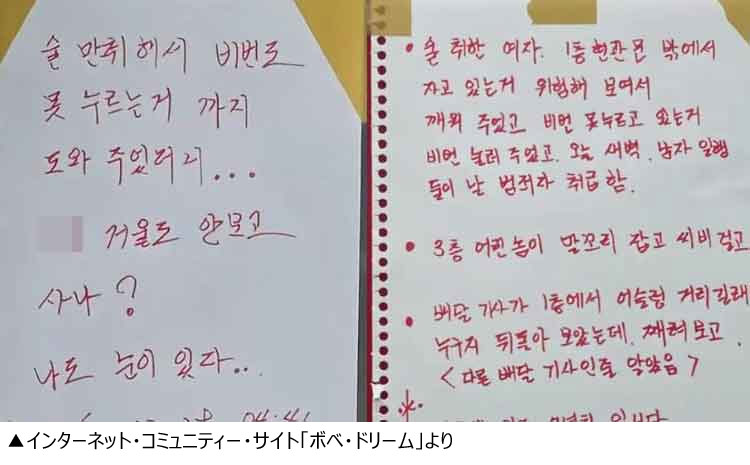 술 만취해서 비번도
못 누르는거 까지
도와 주었더니...
거울도 안보고
사나?
나도 눈이 있다..
• 술 취한 여자. 1층 현관문 밖에서
자고 있는거 위험해 보여서
깨워 주었고 비번 못누르고 있는거
비번 눌러 주었고. 오늘 새벽. 남자 일행
들이 날 범죄자 취급함.
• 3층 어린놈이 말꼬리 잡고 씨비걸고
• 배달기사가 1층에서 어슬렁 거리길래
누구지 뒤돌아 보았는데, 째려보고.
<다른 배달 기사인줄 알았음>
▲インターネット・コミュニティー・サイト「ボベ・ドリーム」より